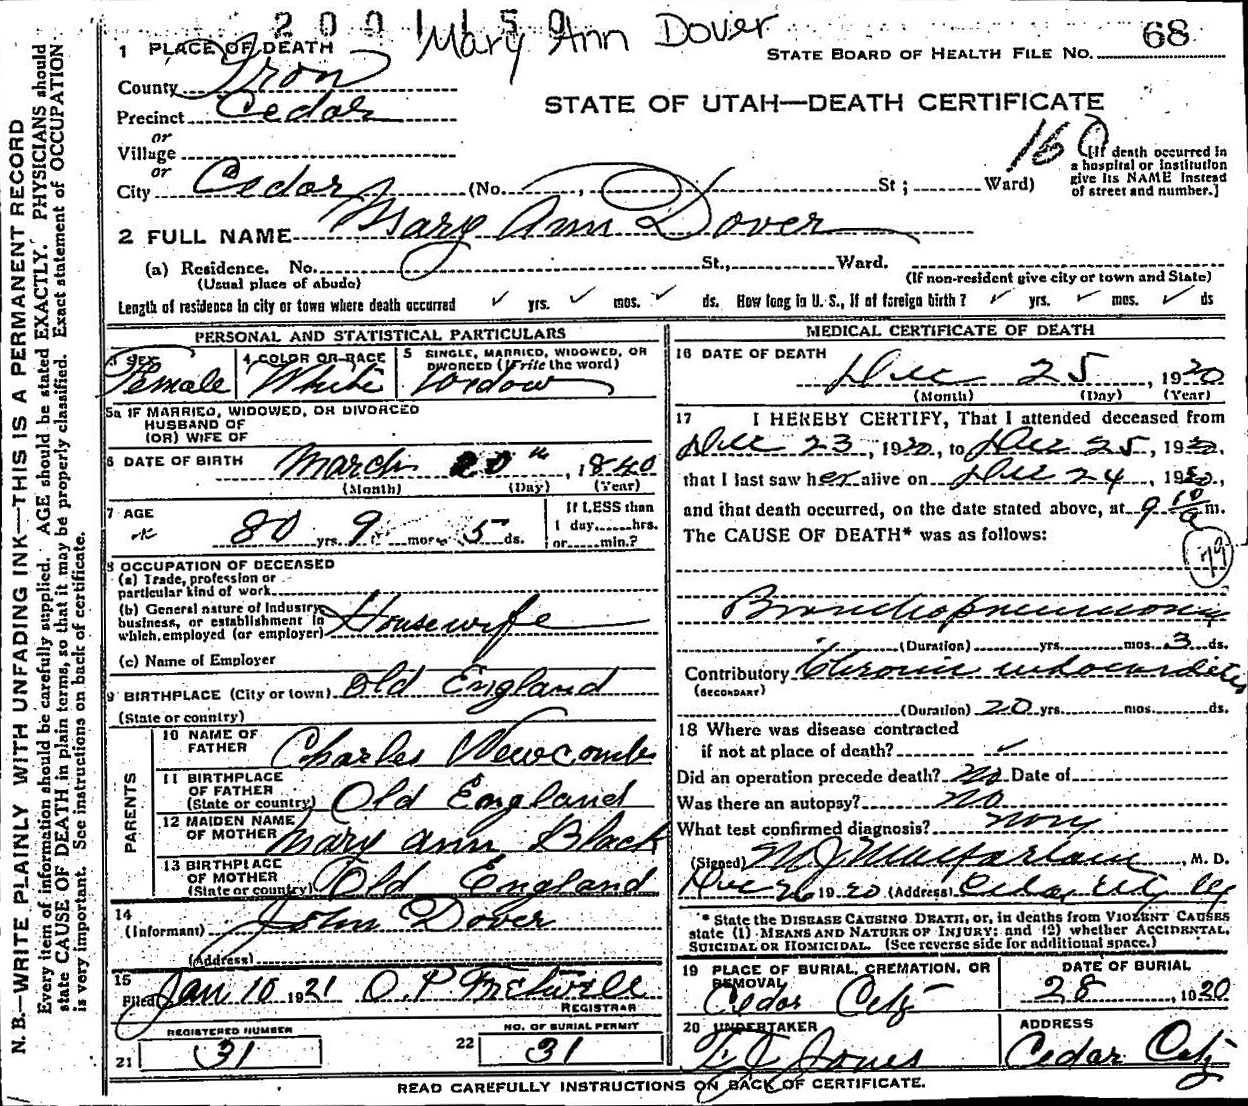 2001150
Mary Ann Dover
68
STATE BOARD OF HEALTH FILE NO.
1 PLACE OF DEATH
County Iron
Precinct Cedar
or
Village
or
City Cedar (No. , St; Ward)
STATE OF UTAH—DEATH CERTIFICATE
160
[If death occurred in
a hospital or institution
give its NAME instead
of street and number.]
2 FULL NAME Mary Ann Dover
(a) Residence. No. St., Ward.
(Usual place of abode) (If non-resident give city or town and State)
Length of residence in city or town where death occurred ✓ yrs. ✓ mos. ✓ ds. How long in U. S., if of foreign birth? ✓ yrs. ✓ mos. ✓ ds
PERSONAL AND STATISTICAL PARTICULARS
3 SEX 4 COLOR OR RACE 5 SINGLE, MARRIED, WIDOWED, OR
DIVORCED (Write the word)
Female White Widow
5a IF MARRIED, WIDOWED, OR DIVORCED
HUSBAND OF
(OR) WIFE OF
6 DATE OF BIRTH March 20th, 1840
(Month) (Day) (Year)
7 AGE 80 yrs. 9 mos. 5 ds.
If LESS than
1 day......hrs.
or......min.?
8 OCCUPATION OF DECEASED
(a) Trade, profession or
particular kind of work
(b) General nature of Industry,
business, or establishment in
which employed (or employer) Housewife
(c) Name of Employer
9 BIRTHPLACE (City or town) Old England
(State or country)
PARENTS
10 NAME OF
FATHER Charles Newcomb
11 BIRTHPLACE
OF FATHER
(State or country) Old England
12 MAIDEN NAME
OF MOTHER Mary Ann Black
13 BIRTHPLACE
OF MOTHER
(State or country) Old England
14
(Informant) John Dover
(Address)
15
Filed Jan 10 1921 O. P. Fretwell
REGISTRAR
REGISTERED NUMBER NO. OF BURIAL PERMIT
21 31 22 31
MEDICAL CERTIFICATE OF DEATH
16 DATE OF DEATH
Dec 25, 1920
(Month) (Day) (Year)
17 I HEREBY CERTIFY, That I attended deceased from
Dec 23, 1920, to Dec 25, 1920,
that I last saw her alive on Dec 24, 1920,
and that death occurred, on the date stated above, at 9 10/a m.
The CAUSE OF DEATH* was as follows:
79
Bronchopneumonia
(Duration) yrs. mos. 3 ds.
Contributory Chronic endocarditis
(SECONDARY)
(Duration) 20 yrs. mos. ds.
18 Where was disease contracted
if not at place of death? ✓
Did an operation precede death? No Date of
Was there an autopsy? No
What test confirmed diagnosis?
(Signed) M J Macfarlane, M. D.
Dec 26 1920 (Address) Cedar City
* State the DISEASE CAUSING DEATH, or, in deaths from VIOLENT CAUSES
state (1) MEANS AND NATURE OF INJURY; and (2) whether ACCIDENTAL,
SUICIDAL OR HOMICIDAL. (See reverse side for additional space.)
19 PLACE OF BURIAL, CREMATION, OR
REMOVAL
Cedar City
DATE OF BURIAL
28, 1920
20 UNDERTAKER
Jones
ADDRESS
Cedar City
READ CAREFULLY INSTRUCTIONS ON BACK OF CERTIFICATE.
N. B.—WRITE PLAINLY WITH UNFADING INK—THIS IS A PERMANENT RECORD
Every item of information should be carefully supplied. AGE should be stated EXACTLY. PHYSICIANS should
state CAUSE OF DEATH in plain terms, so that it may be properly classified. Exact statement of OCCUPATION
is very important. See instructions on back of certificate.